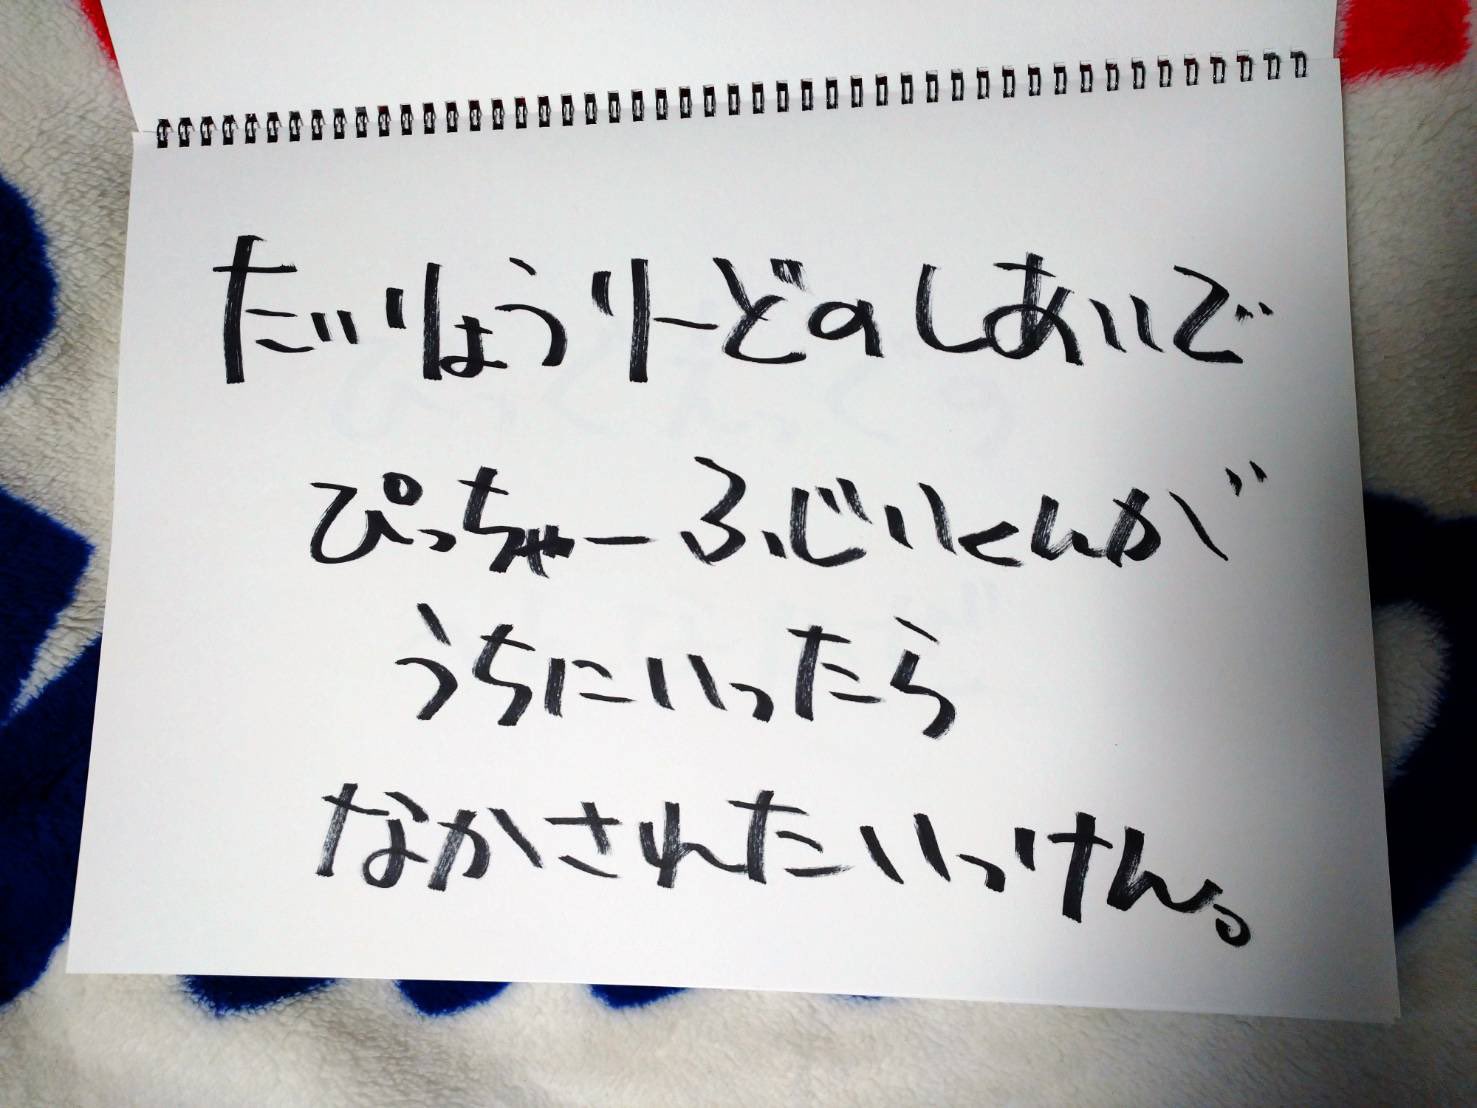 たいりょうりーどのしあいで
ぴっちゃーふじいくんが
うちにいったら
なかされたいっけん。